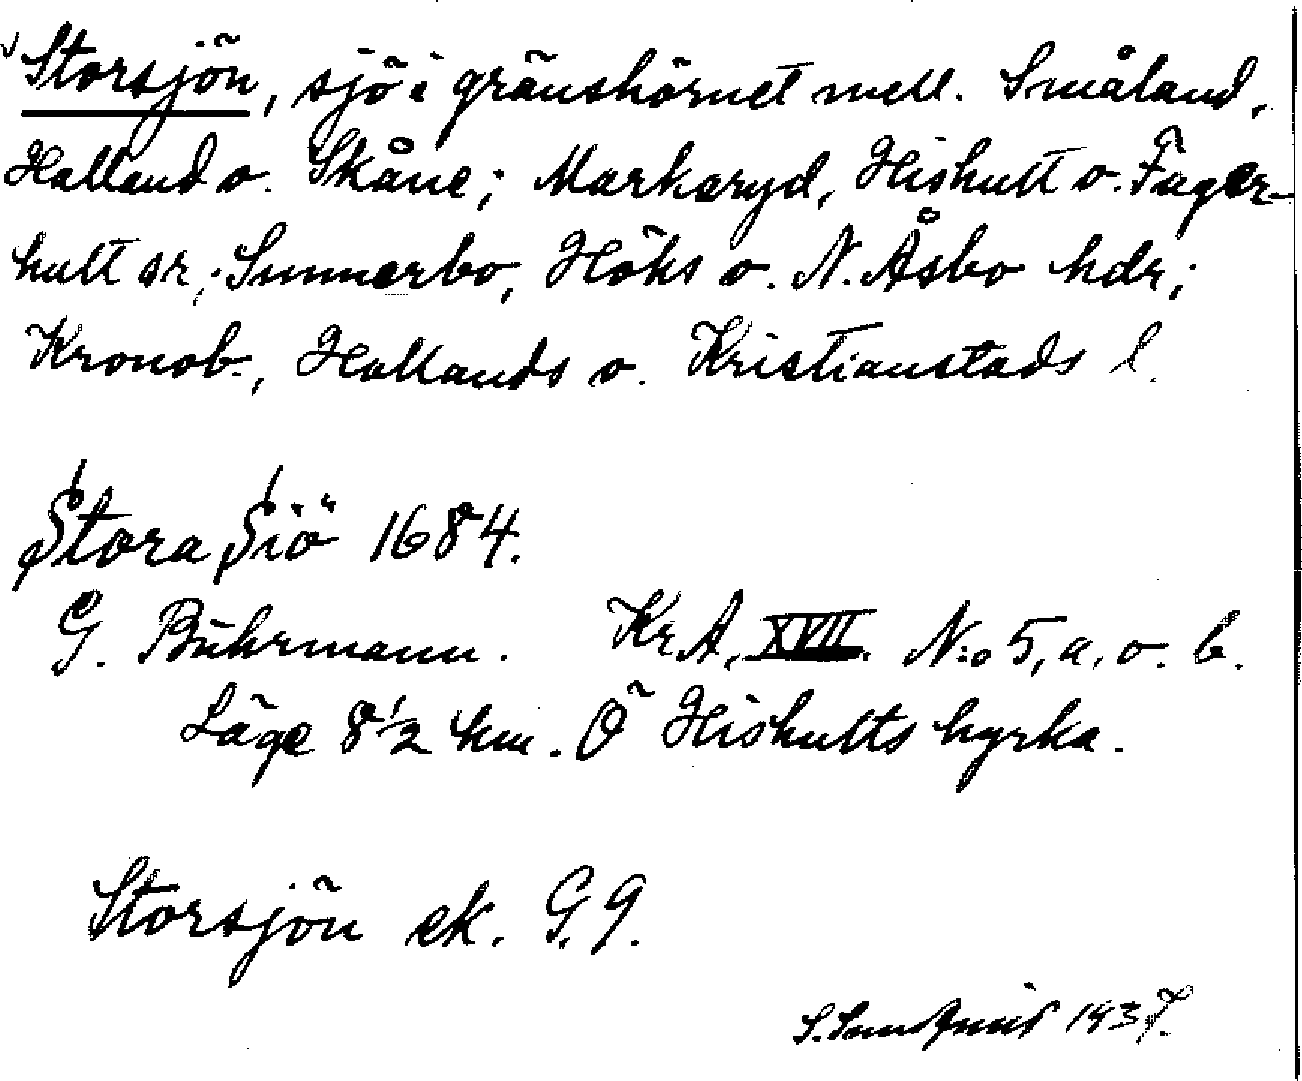 Storsjön, sjö i gränshörnet mell. Småland,
Halland o. Skåne; Markaryd, Hishult o. Fager-
hult sr; Sunnerbo, Höks o. N. Åsbo hdr;
Kronob., Hallands o. Kristianstads l.
Stora Siö 1684.
G. Buhrmann. Kr A, XVII. N:o 5, a, o. b.
Läge 8 1/2 km. Ö Hishults kyrka.
Storsjön ek. G. 9.
S. 1937.